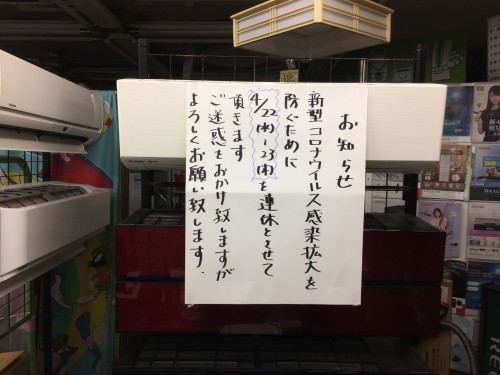 お知らせ
新型コロナウイルス感染拡大を
防ぐために
4/22(水)~23(木)を連休とさせて
頂きます
ご迷惑をおかけ致しますが
よろしくお願い致します.